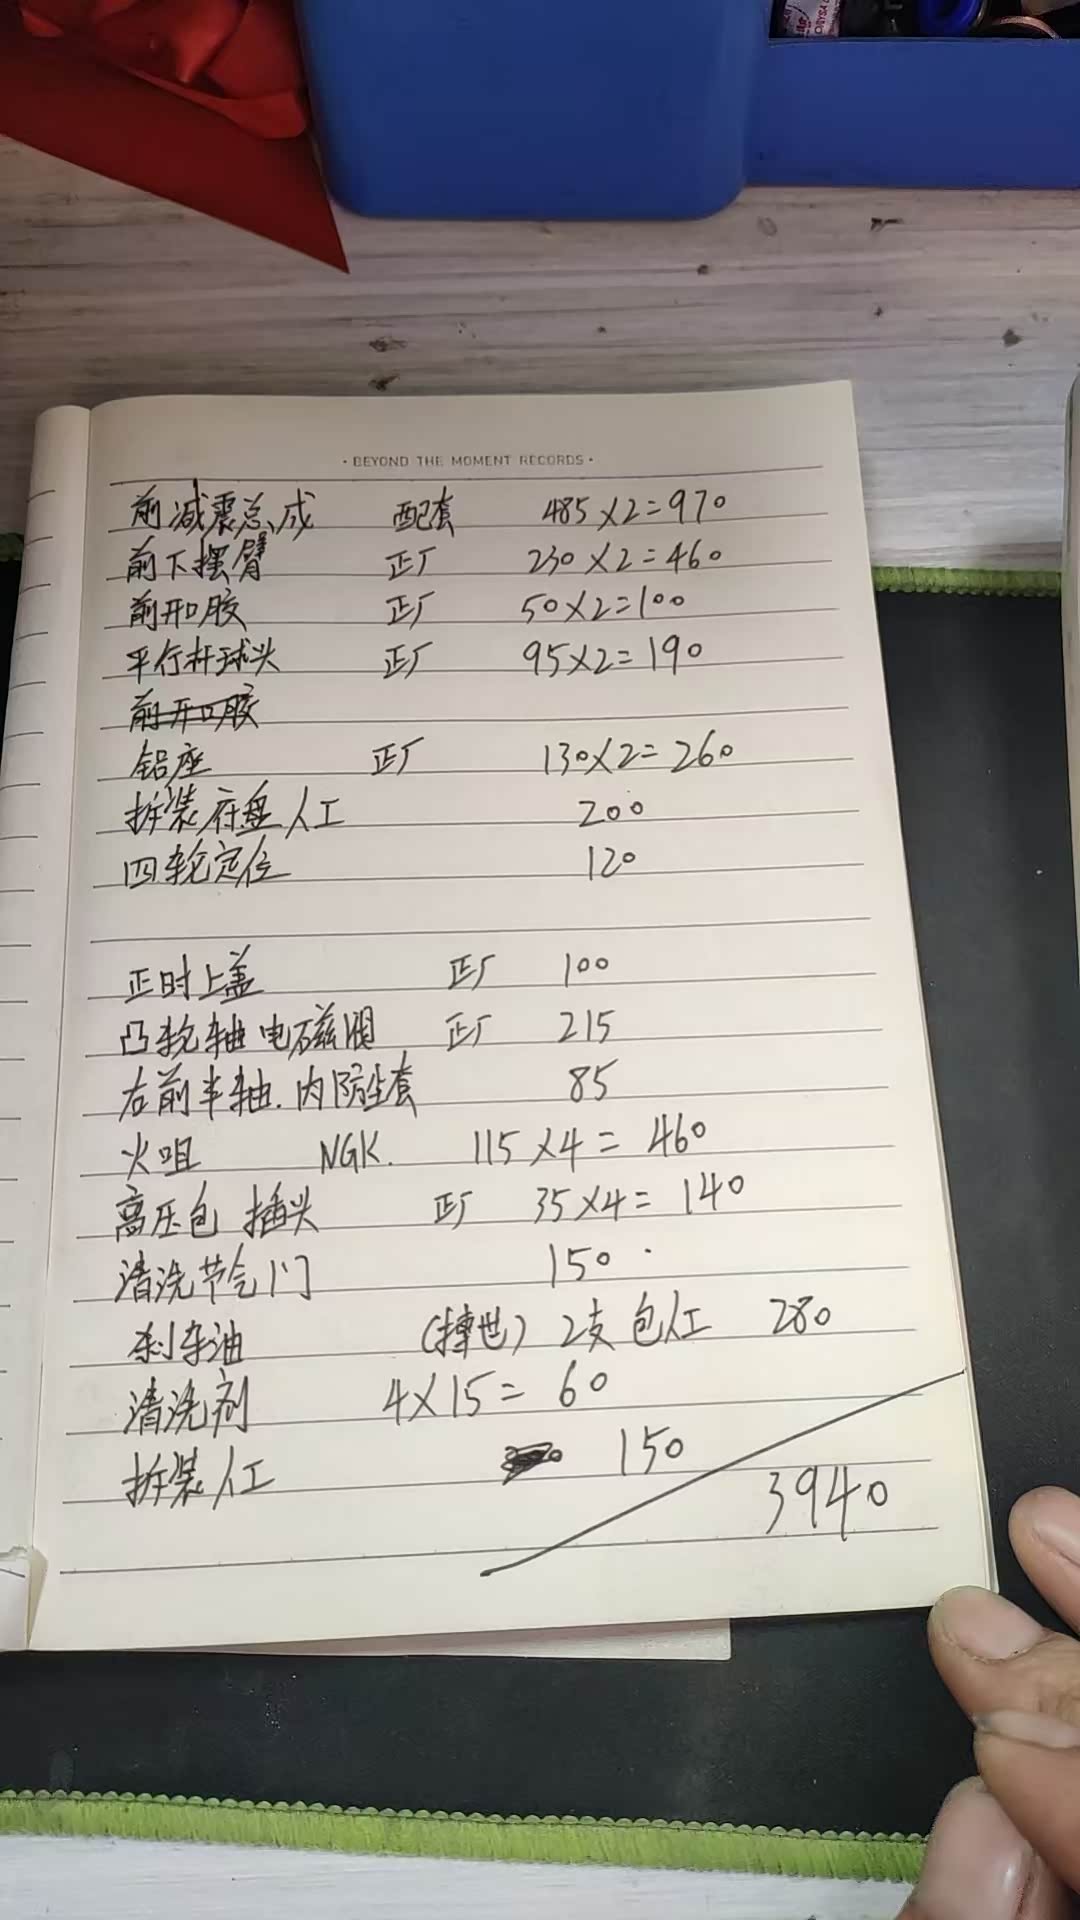 · BEYOND THE MOMENT RECORDS ·
前减震总成 配套 485×2=970
前下摆臂 正厂 230×2=460
前开口胶 正厂 50×2=100
平行杆球头 正厂 95×2=190
前开口胶
铝座 正厂 130×2=260
拆装底盘人工 200
四轮定位 120
正时上盖 正厂 100
凸轮轴电磁阀 正厂 215
右前半轴.内防尘套 85
火咀 NGK. 115×4=460
高压包插头 正厂 35×4=140
清洗节气门 150
刹车油 (博世) 2支包人工 280
清洗剂 4×15=60
拆装人工 150
3940